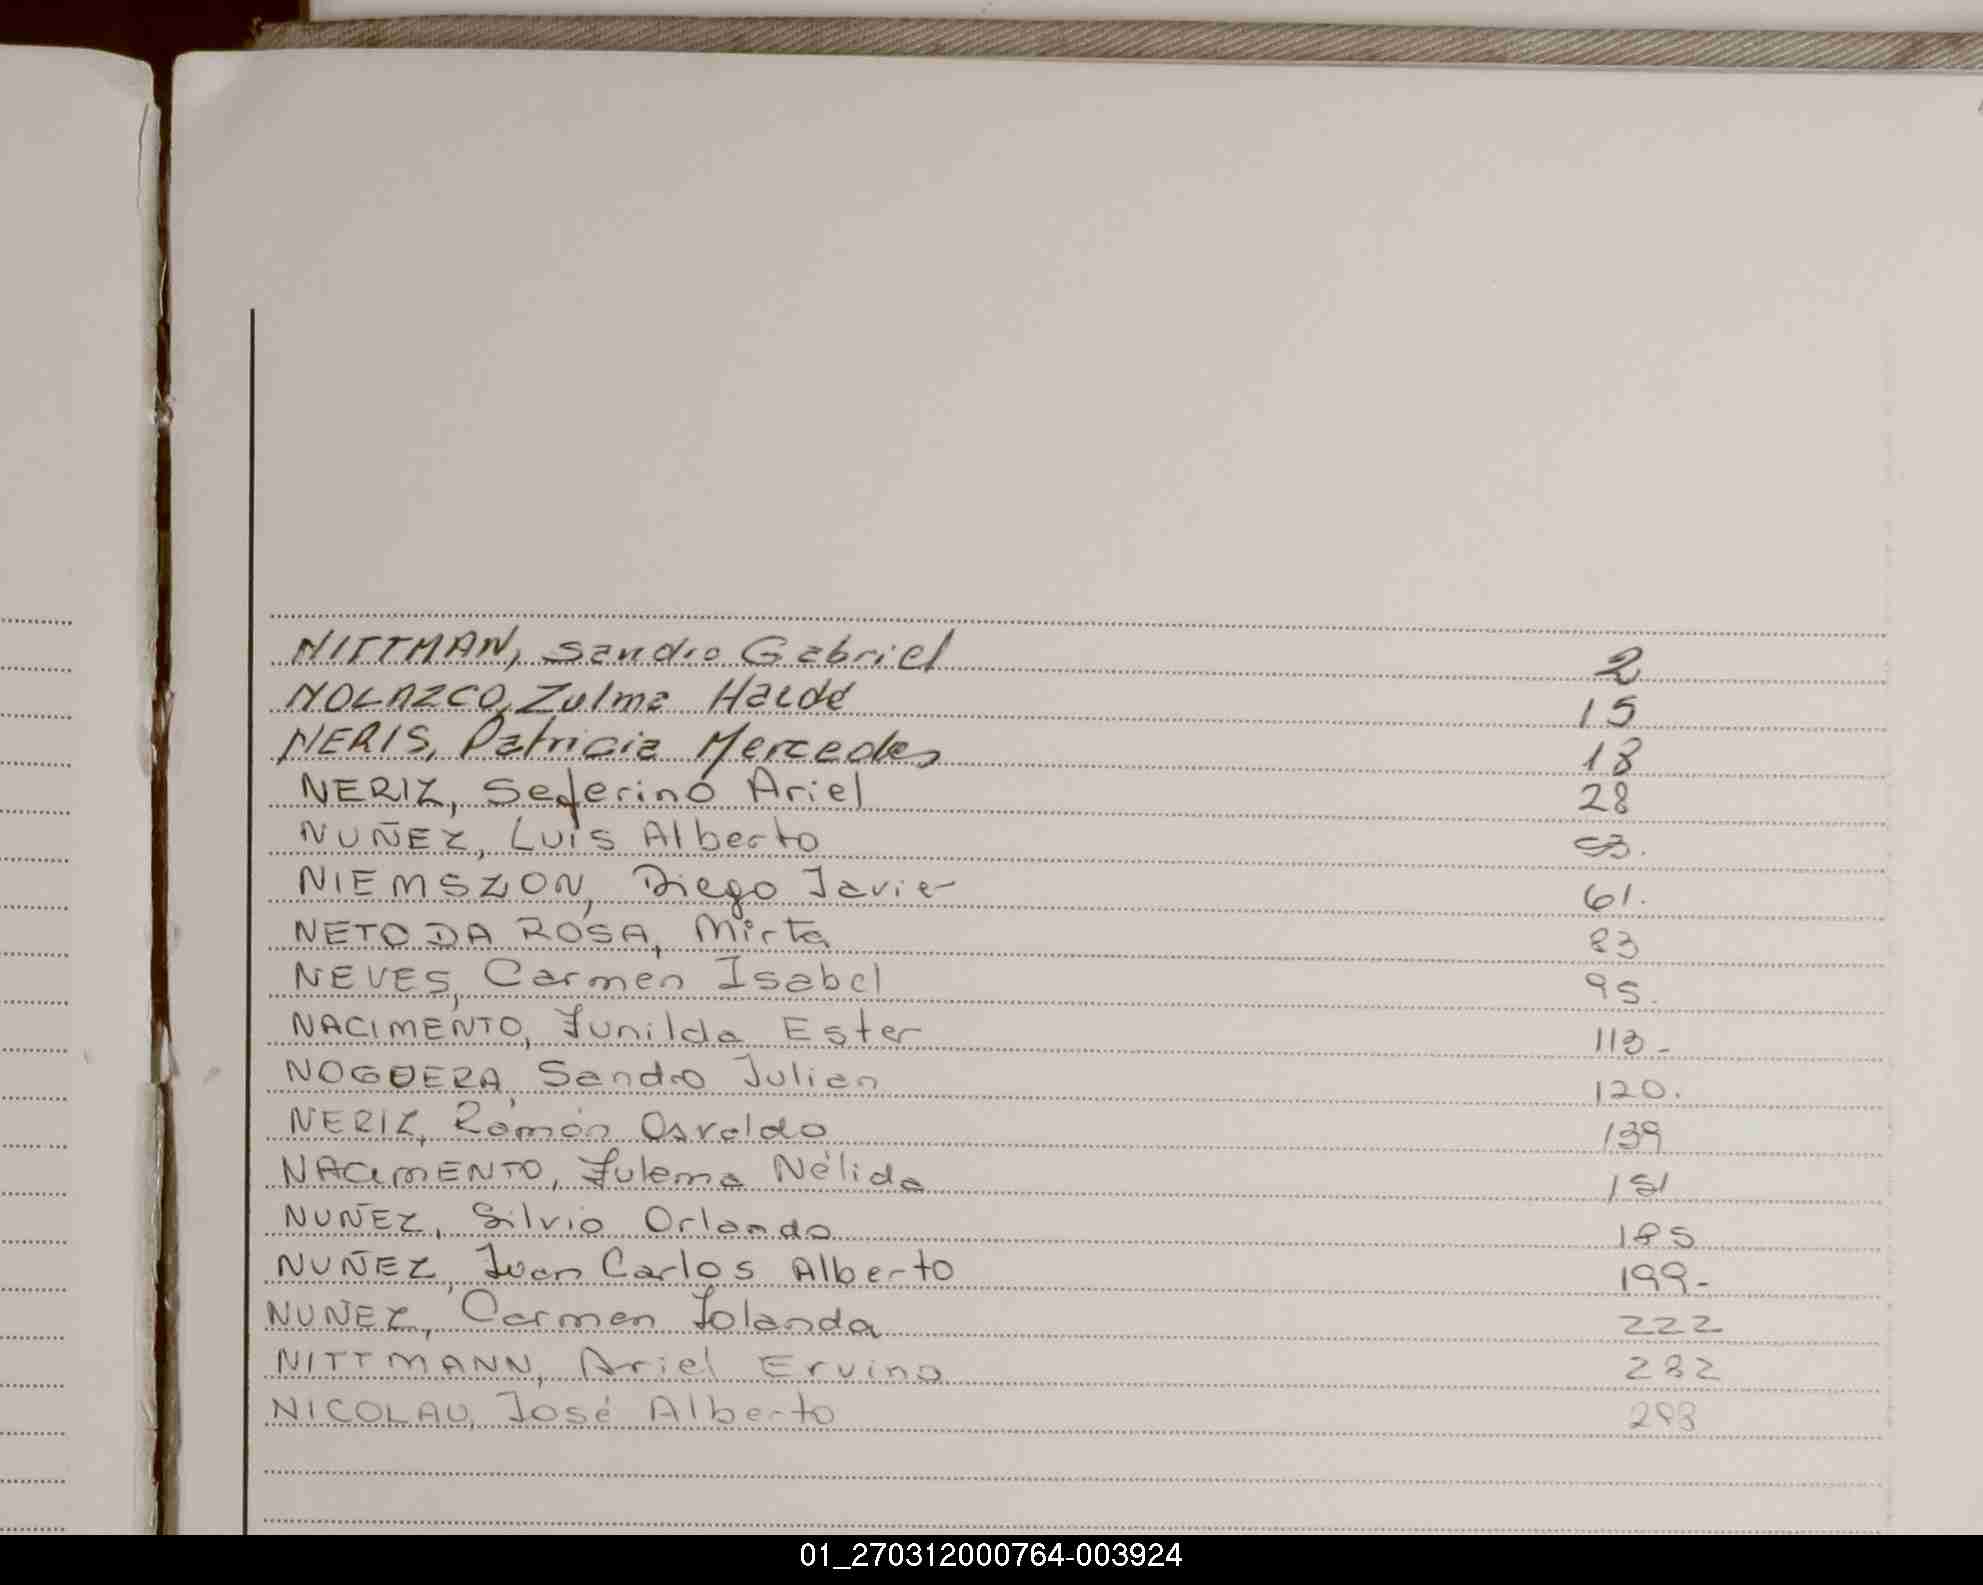 NITTMAN, Sandro Gabriel 2
NOLAZCO, Zulma Haidé 15
NERIS, Patricia Mercedes 18
NERIZ, Seferino Ariel 28
NUÑEZ, Luis Alberto 53.
NIEMSZON, Diego Javier 61.
NETO DA ROSA, Mirta 83
NEVES, Carmen Isabel 95.
NACIMENTO, Zunilda Ester 113-
NOGUERA, Sandro Julian 120.
NERIZ, Ramón Osvaldo 139
NACIMENTO, Zulema Nélida 151
NUÑEZ, Silvio Orlando 185
NUÑEZ, Juan Carlos Alberto 199-
NUÑEZ, Carmen Yolanda 222
NITTMANN, Ariel Ervino 282
NICOLAU, José Alberto
01_270312000764-003924